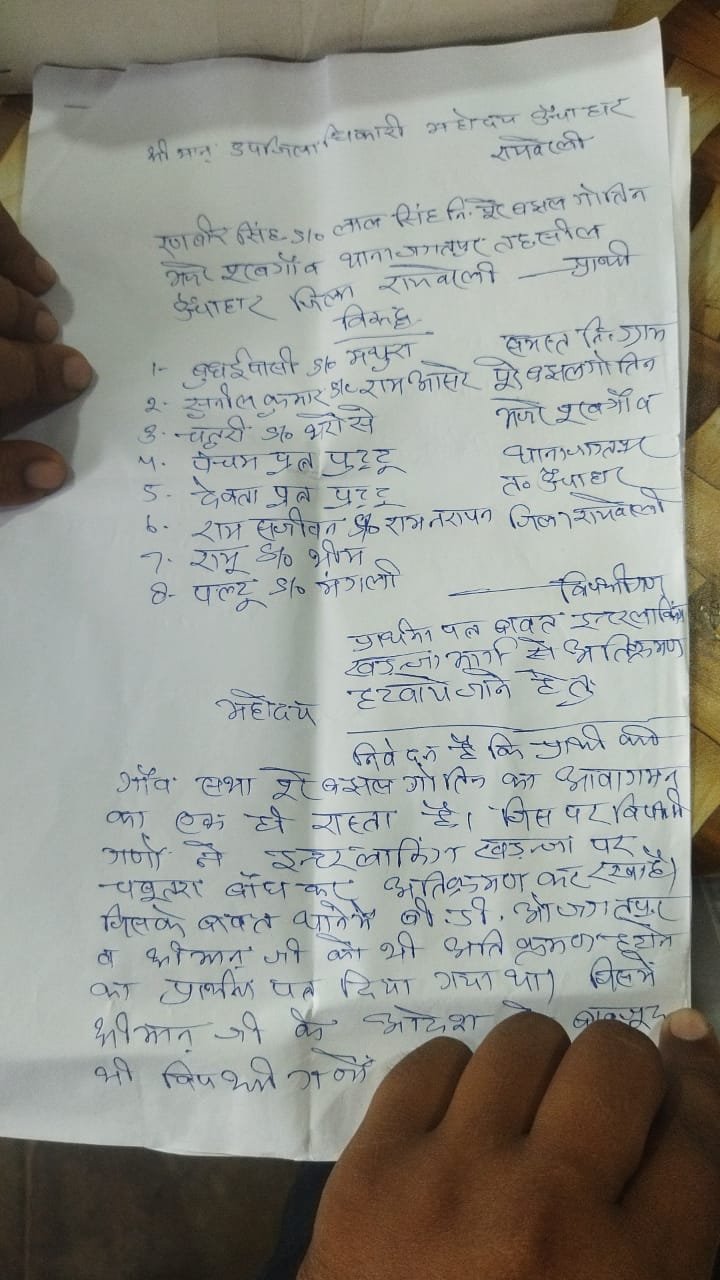 श्रीमान् उपजिलाधिकारी महोदय ऊँचाहार
रायबरेली
रणवीर सिंह S/o लाल सिंह नि. पूरे बझल गोतिन
मजरे थाना जगतपुर तहसील
ऊँचाहार जिला रायबरेली — प्रार्थी
विरुद्ध
1- S/o मथुरा समस्त नि. ग्राम
2- सुनील कुमार S/o राम आसरे पूरे बझलगोतिन
3- S/o भरोसे मजरे
4- पंचम पुत्र पुट्टू थाना जगतपुर
5- देवता पुत्र पुट्टू त० ऊँचाहार
6- राम सजीवन S/o जिला रायबरेली
7- रामू S/o भीम
8- पल्टू S/o मंगली — विपक्षीगण
प्रार्थना पत्र बावत इन्टरलाकिंग
खड़न्जा मार्ग से अतिक्रमण
महोदय हटवाये जाने हेतु
निवेदन है कि प्रार्थी की
गाँव सभा पूरे बझल गोतिन का आवागमन
का एक ही रास्ता है। जिस पर विपक्षी
गणों ने इन्टरलाकिंग खड़न्जा पर
चबूतरा बाँध कर अतिक्रमण कर रखा है।
जिसके बावत बी.डी.ओ जगतपुर
व श्रीमान् जी को भी अतिक्रमण हटाने
का प्रार्थना पत्र दिया गया था। जिसमें
श्रीमान् जी के आदेश के बावजूद
भी विपक्षी गणों